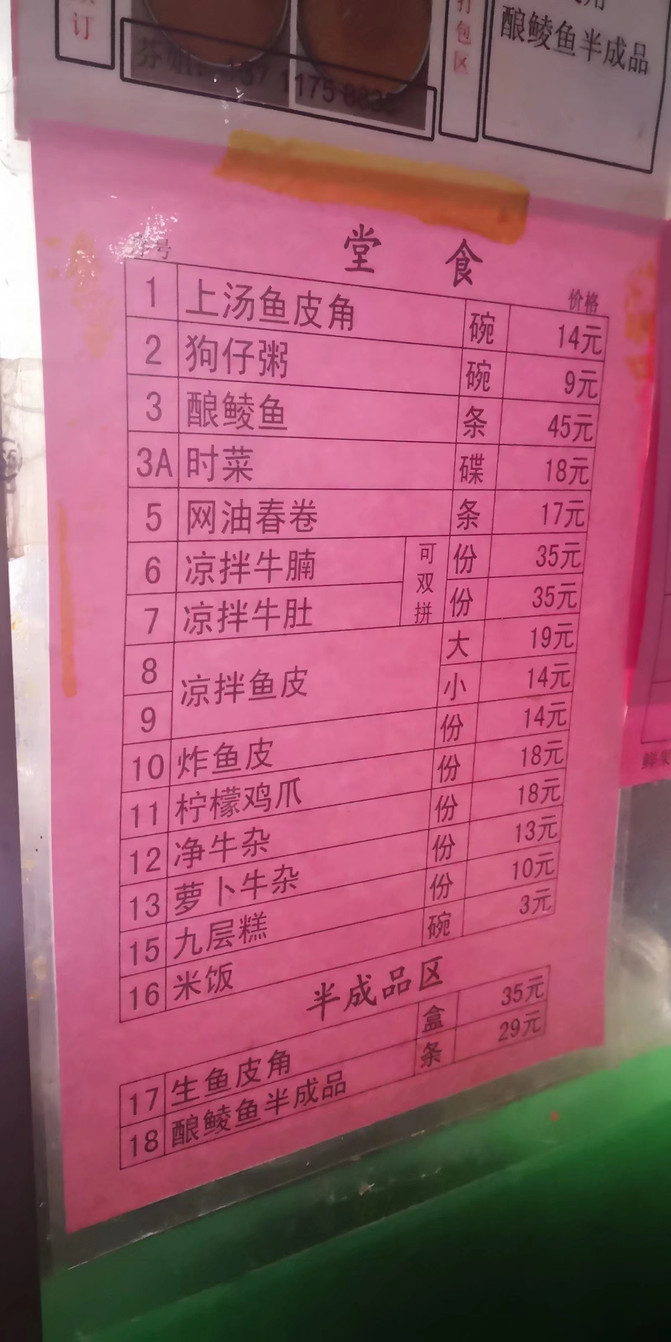 订
打包区
酿鲮鱼半成品
堂 食
序号 价格
1 上汤鱼皮角 碗 14元
2 狗仔粥 碗 9元
3 酿鲮鱼 条 45元
3A 时菜 碟 18元
5 网油春卷 条 17元
6 凉拌牛腩 可双拼 份 35元
7 凉拌牛肚 份 35元
8 凉拌鱼皮 大 19元
9 小 14元
10 炸鱼皮 份 14元
11 柠檬鸡爪 份 18元
12 净牛杂 份 18元
13 萝卜牛杂 份 13元
15 九层糕 份 10元
16 米饭 碗 3元
半成品区
17 生鱼皮角 盒 35元
18 酿鲮鱼半成品 条 29元